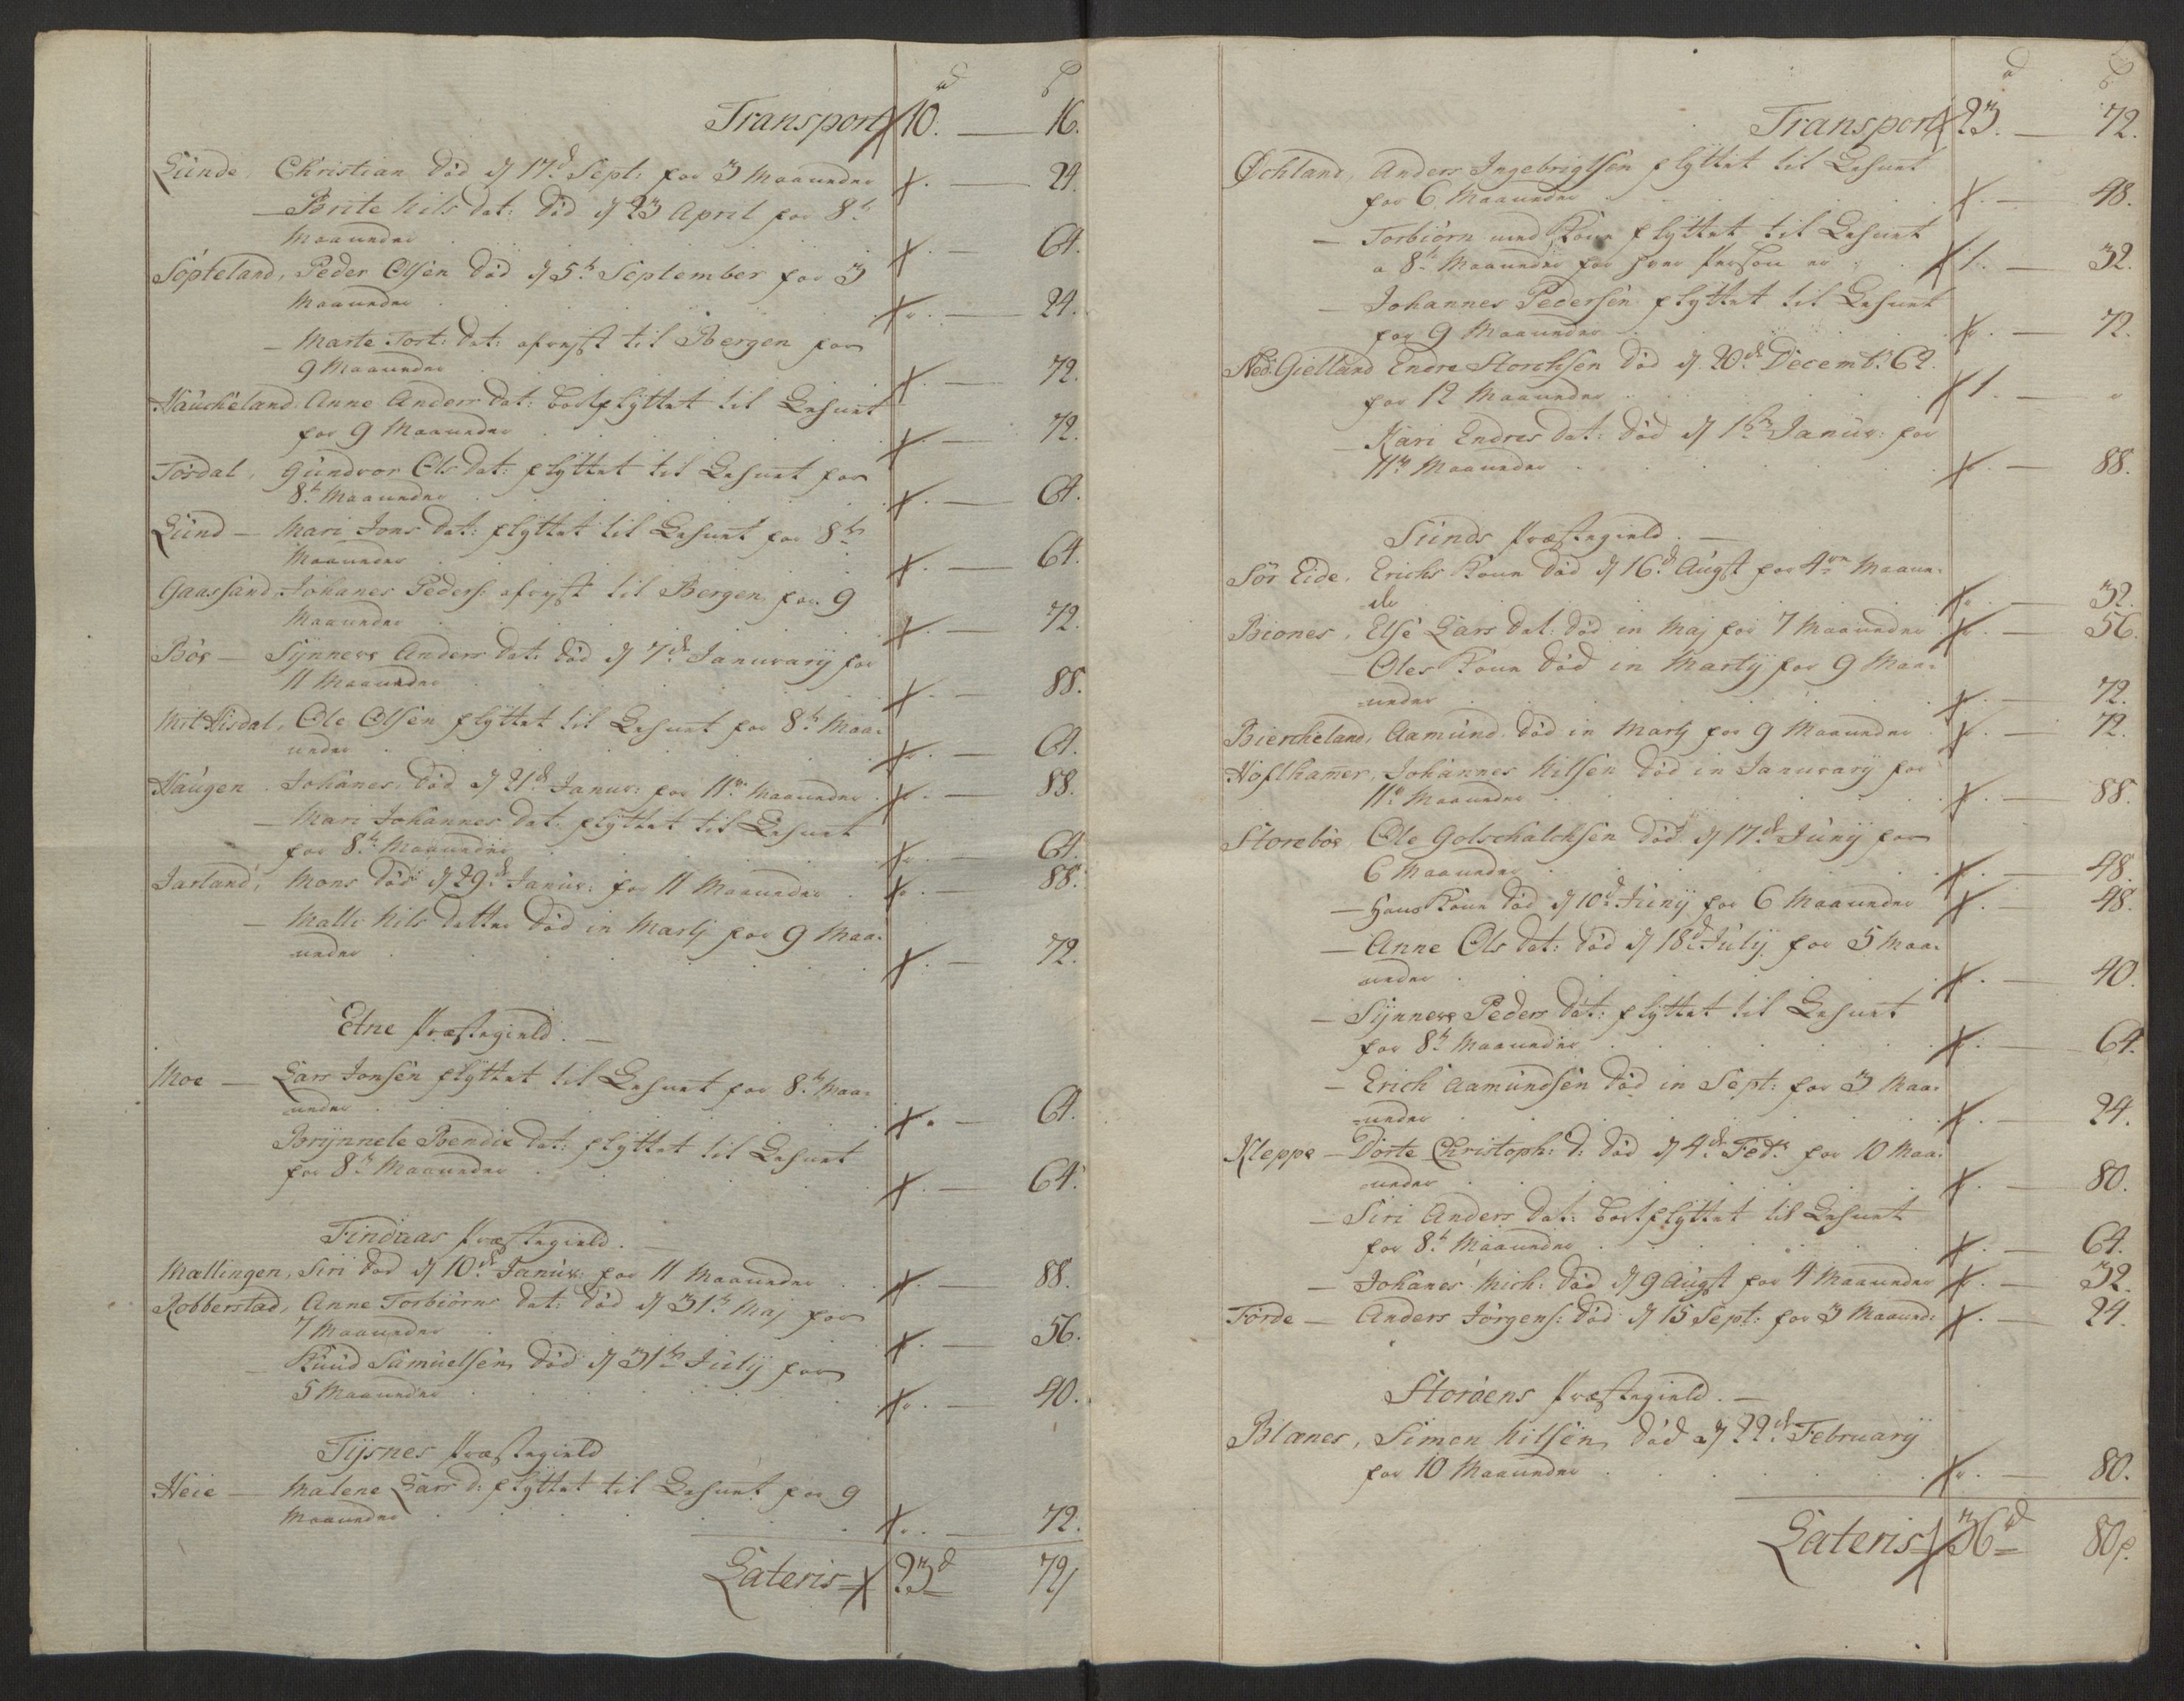 d ß
Transport 10. — 16.
Lunde, Christian død d 17d Sept: for 3 Maaneder — 24.
— Brite Nils dat: død d 23 April for 8te
Maaneder — 64.
Söpteland, Peder Olsen død d 5te September for 3
Maaneder — 24.
— Marte Tost: dat: afrejst til Bergen for
9 Maaneder — 72.
Hauckeland, Anne Anders dat: bortflyttet til Lehnet
for 9 Maaneder — 72.
Tosdal, Gundvor Ols dat: flyttet til Lehnet for
8te Maaneder — 64.
Lund — Mari Jons dat: flyttet til Lehnet for 8te
Maaneder — 64.
Gaassand, Johanes Peders: afrejst til Bergen for 9
Maaneder — 72.
Böe — Synneve Anders dat: død d 7de Januvary for
11 Maaneder — 88.
Mit Hisdal, Ole Olsen flyttet til Lehnet for 8te Maa-
neder — 64.
Haugen. Johanes, død d 21de Januv: for 11ve Maaneder — 88.
— Mari Johannes dat: flyttet til Lehnet
for 8te Maaneder — 64.
Jarland, Mons død d 29de Januv: for 11 Maaneder — 88.
— Malli Nils datter død in Martj for 9 Maa-
neder — 72.
Etne Præstegield. —
Moe — Lars Jonsen flyttet til Lehnet for 8te Maa-
neder — 64.
Brynnele Bendix dat: flyttet til Lehnet
for 8te Maaneder — 64.
Findaas Præstegield. —
Mællingen, Siri død d 10de Januv: for 11 Maaneder — 88.
Robberstad, Anne Torbiörns dat: død d 31te Maj for
7 Maaneder — 56.
— Knud Samuelsen, død d 31te July for
5 Maaneder — 40.
Tysnes Præstegield
Heie — Malene Lars d: flyttet til Lehnet for 9
Maaneder — 72.
Lateris 23d 72ß
d ß
Transport 23. — 72.
Øchland, Anders Ingebrigtsen flyttet til Lehnet
for 6 Maaneder — 48.
— Torbiörn med Kone flyttet til Lehnet
a 8te Maaneder for hver Person er 1. — 32.
— Johannes Pedersen flyttet til Lehnet
for 9 Maaneder — 72.
Ned: Gielland Endre Storchsen død d 20de Decembr: 62.
for 12 Maaneder 1. — "
— Kari Endres dat: død d 1te Januv: for
11ve Maaneder — 88.
Sunds Præstegield. —
Sör Eide, Erichs Kone død d 16de Augst for 4re Maane-
de — 32.
Biones, Else Lars dat: død in Maj for 7 Maaneder — 56.
— Oles Kone død in Martij for 9 Maa-
neder — 72.
Biercheland, Aamund, død in Martj for 9 Maaneder — 72.
Hoflhamer, Johannes Nilsen død in Januvary for
11ve Maaneder — 88.
Storebøe, Ole Golschalchsen død d 17de Juny for
6 Maaneder — 48.
— Hans Kone død d 10de Juny for 6 Maaneder — 48.
— Anne Ols dat: død d 18de July for 5 Maa-
neder — 40.
— Synneve Peders dat: flyttet til Lehnet
for 8te Maaneder — 64.
— Erich Aamundsen død in Sept: for 3 Maa-
neder — 24.
Kleppe — Dorte Christoph: d: død d 4de Febr: for 10 Maa-
neder — 80.
— Siri Anders dat: bortflyttet til Lehnet
for 8te Maaneder — 64.
— Johanes Mich: død d 9 Augst for 4 Maaneder — 32.
Förde — Anders Jörgens: død d 15 Sept: for 3 Maaned: — 24.
Storöens Præstegield. —
Blanes, Simon Nilsen, død d 22de February
for 10 Maaneder — 80.
Lateris 36d 80ß.